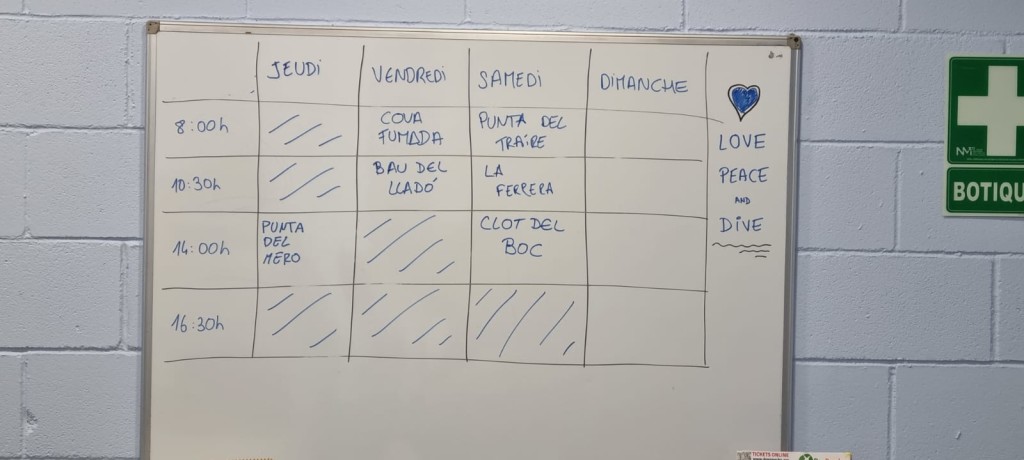 JEUDI VENDREDI SAMEDI DIMANCHE
8:00h COVA PUNTA DEL
FUMADA TRAIRE
10:30h BAU DEL LA
LLADÓ FERRERA
14:00h PUNTA CLOT DEL
DEL BOC
MERO
16:30h
LOVE
PEACE
AND
DIVE
BOTIQU
TICKETS ONLINE